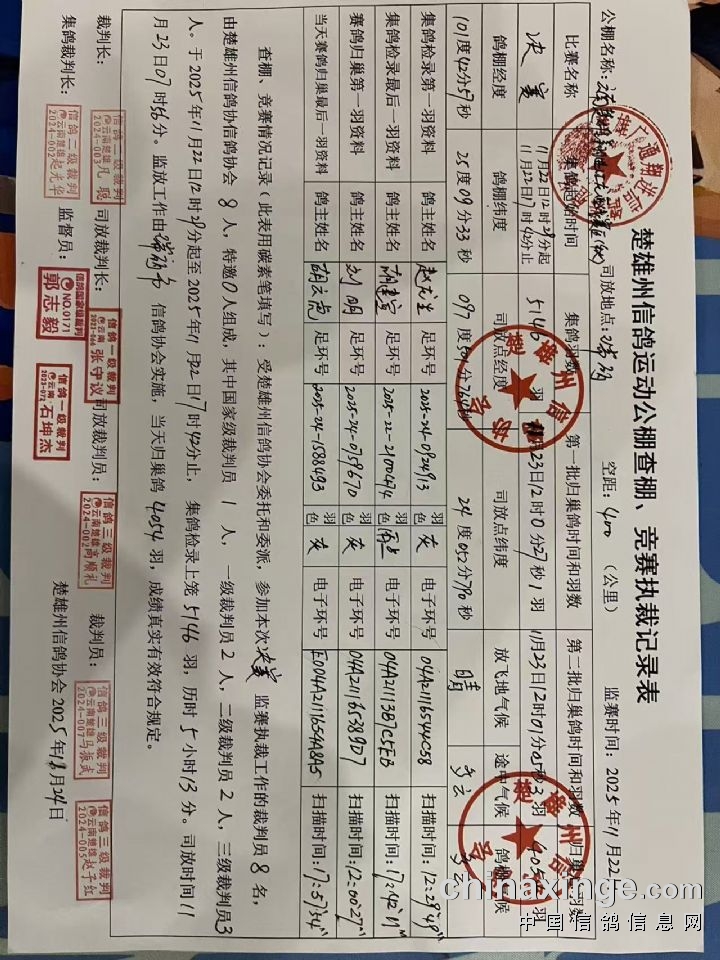 楚雄州信鸽运动公棚查棚、竞赛执裁记录表
公棚名称: 司放地点: 空距: 400 (公里) 监赛时间: 2025年11月22
比赛名称 集鸽起始时间 集鸽羽数 第一批归巢鸽时间和羽数 第二批归巢鸽时间和羽数 归巢 羽数
决赛 11月22日12时29分起 11月22日17时42分止 5146 羽 11月23日12时0分27秒1羽 11月23日12时01分05秒3羽 4054羽
鸽棚经度 鸽棚纬度 司放点经度 司放点纬度 放飞地气候 途中气候 鸽棚气候
101度42分57秒 25度09分33秒 097度 秒 24度052分778秒 晴 多云 多云
集鸽检录第一羽资料 鸽主姓名 赵光生 足环号 2025-24-0924913 羽色 灰 电子环号 04A2116544C58 扫描时间:12:29'49"
集鸽检录最后一羽资料 鸽主姓名 胡建宣 足环号 2025-22-2100474 羽色 雨点 电子环号 04A21113B7CFEB 扫描时间:17:42'11"
赛鸽归巢第一羽资料 鸽主姓名 刘明 足环号 2025-24-0759670 羽色 灰 电子环号 04A21165389D7 扫描时间:12:00'27"
当天赛鸽归巢最后一羽资料 鸽主姓名 胡云彪 足环号 2025-24-1588493 羽色 灰 电子环号 E004A2111654A8A5 扫描时间:17:57'54"
查棚、竞赛情况记录(此表用碳素笔填写):受楚雄州信鸽协会委托和委派,参加本次决赛监赛执裁工作的裁判员 8 名,
由楚雄州信鸽协信鸽协会 8 人,特邀 0 人组成,其中国家级裁判员 1 人,一级裁判员 2 人,二级裁判员 2 人,三级裁判员 3
人。于 2025年11月22日12时29分起至 2025年11月22日17时42分止,集鸽检录上笼 5146 羽,历时 5 小时 13 分。司放时间 11
月23日07时56分。监放工作由 信鸽协会实施,当天归巢鸽 4054 羽,成绩真实有效符合规定。
裁判长: 信鸽二级裁判 云南楚雄 凡聪 2024-003 司放裁判长: 信鸽一级裁判 云南 张守议 司放裁判员: 信鸽三级裁判 云南楚雄 何顺礼 2024-002 裁判员: 信鸽三级裁判 云南楚雄 马振武 2024-007 信鸽三级裁判 云南楚雄 赵子红 2024-005
集鸽裁判长: 信鸽二级裁判 云南楚雄 起光华 2024-002 监督员: 信鸽国家级裁判 NO.0171 郭志毅 信鸽一级裁判 云南 石坤杰 楚雄州信鸽协会 2025年 月24日
chinaxinge.com
中国信鸽信息网